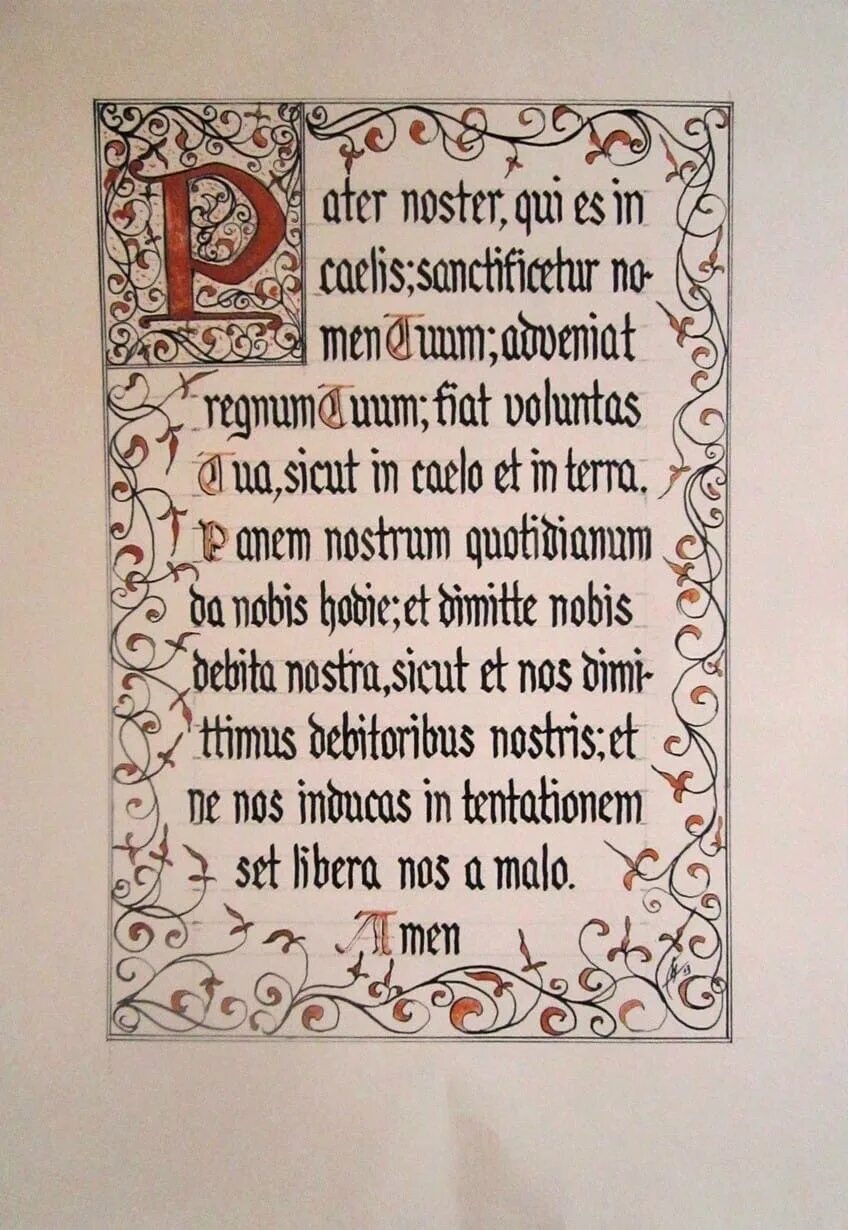 Pater noster, qui es in
caelis; sanctificetur no-
men Tuum; adveniat
regnum Tuum; fiat voluntas
Tua, sicut in caelo et in terra.
Panem nostrum quotidianum
da nobis hodie; et dimitte nobis
debita nostra, sicut et nos dimi-
ttimus debitoribus nostris; et
ne nos inducas in tentationem
set libera nos a malo.
Amen